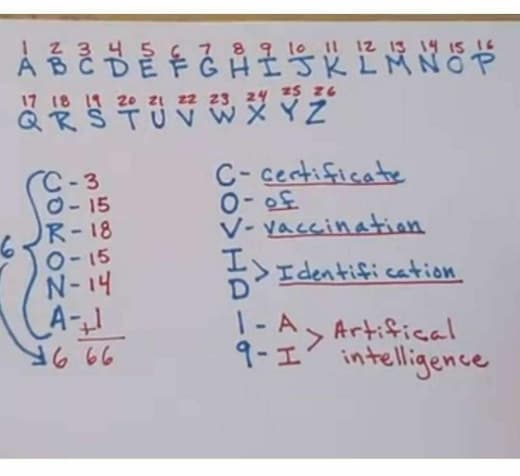 1 2 3 4 5 6 7 8 9 10 11 12 13 14 15 16
A B C D E F G H I J K L M N O P
17 18 19 20 21 22 23 24 25 26
Q R S T U V W X Y Z
C - 3
O - 15
R - 18
6
O - 15
N - 14
A - +1
6 66
C - certificate
O - of
V - vaccination
I
D > Identification
1 - A
9 - I > Artifical intelligence